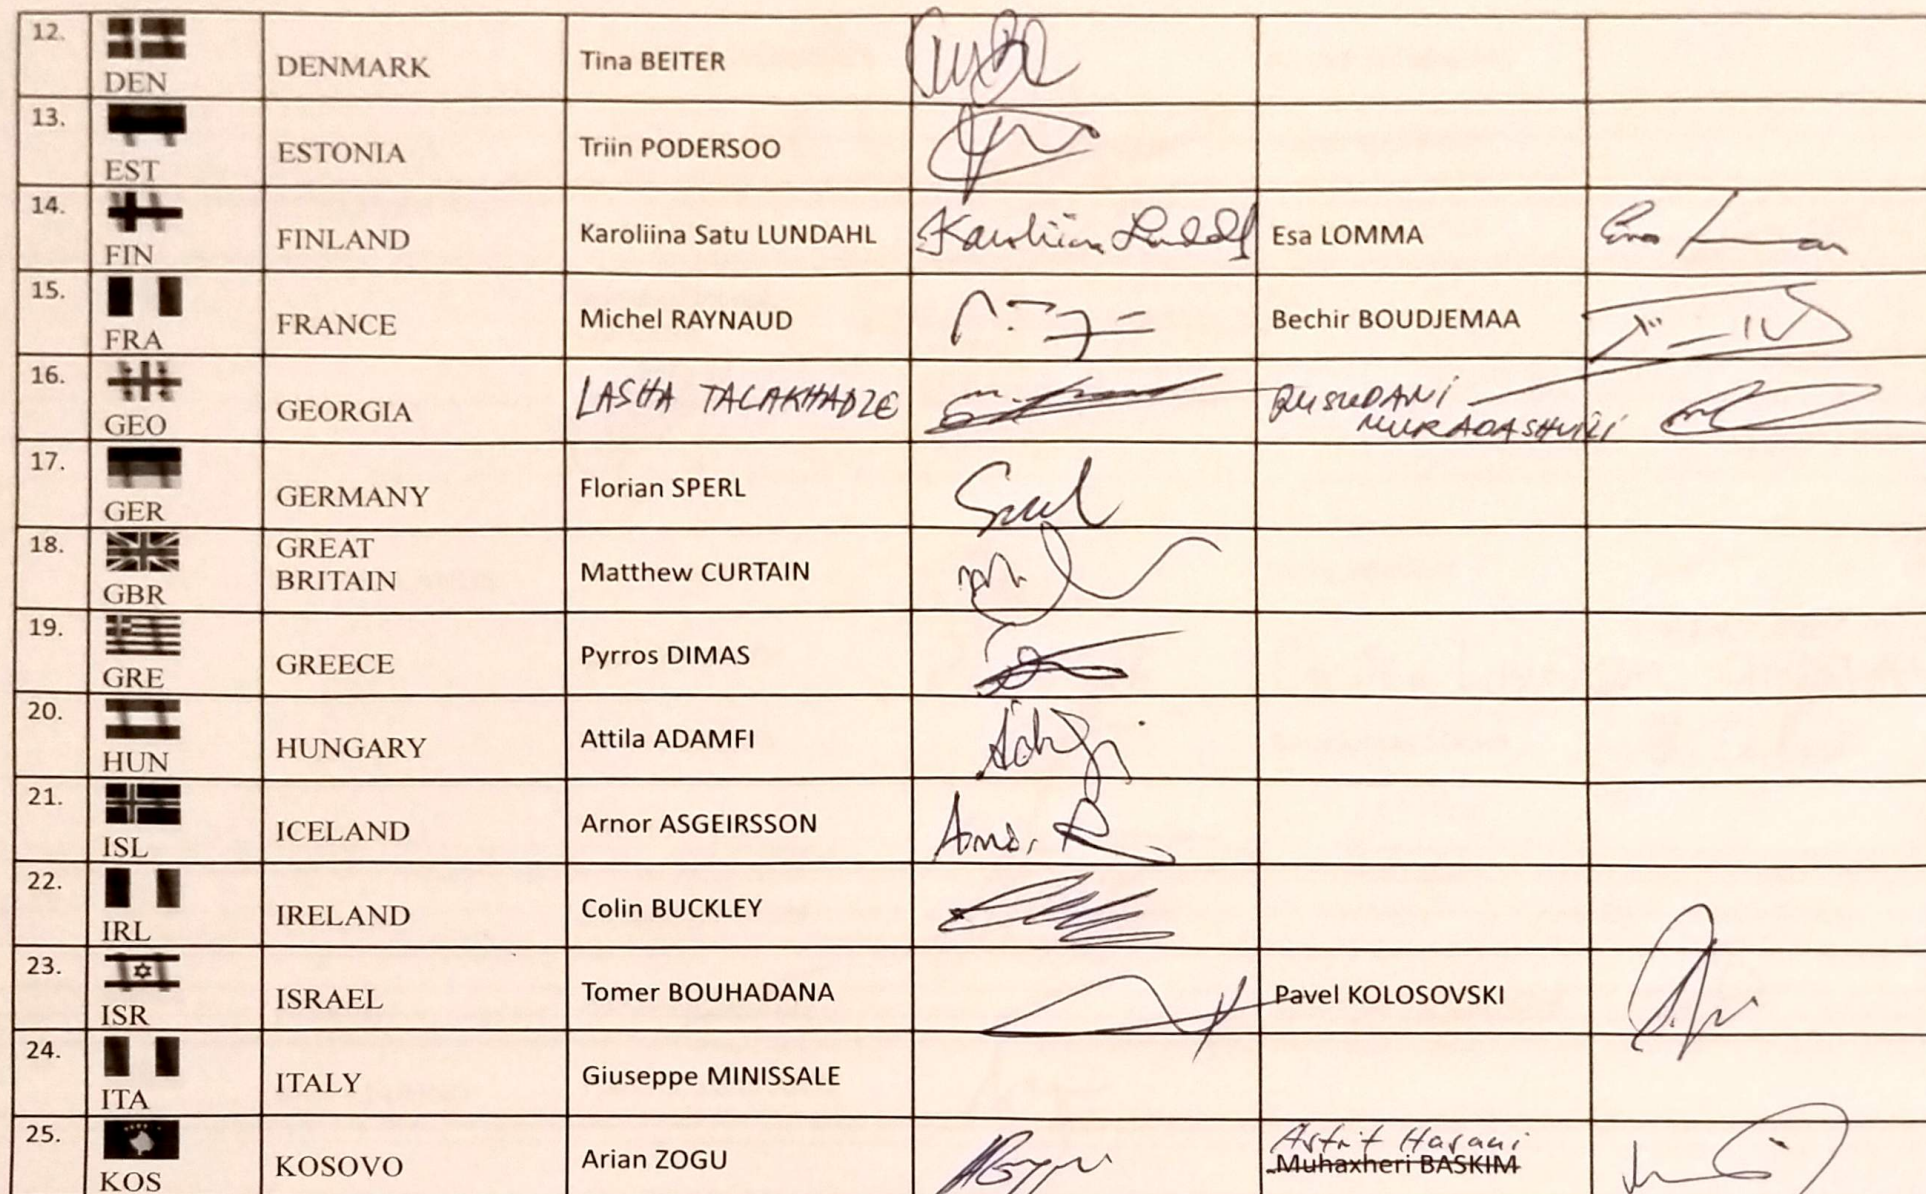 12. DEN DENMARK Tina BEITER
13. EST ESTONIA Triin PODERSOO
14. FIN FINLAND Karoliina Satu LUNDAHL Karoliina Esa LOMMA
15. FRA FRANCE Michel RAYNAUD Bechir BOUDJEMAA
16. GEO GEORGIA LASHA TALAKHADZE
17. GER GERMANY Florian SPERL
18. GBR GREAT BRITAIN Matthew CURTAIN
19. GRE GREECE Pyrros DIMAS
20. HUN HUNGARY Attila ADAMFI
21. ISL ICELAND Arnor ASGEIRSSON
22. IRL IRELAND Colin BUCKLEY
23. ISR ISRAEL Tomer BOUHADANA Pavel KOLOSOVSKI
24. ITA ITALY Giuseppe MINISSALE
Astrit Hasani
25. KOS KOSOVO Arian ZOGU Muhaxheri BASKIM